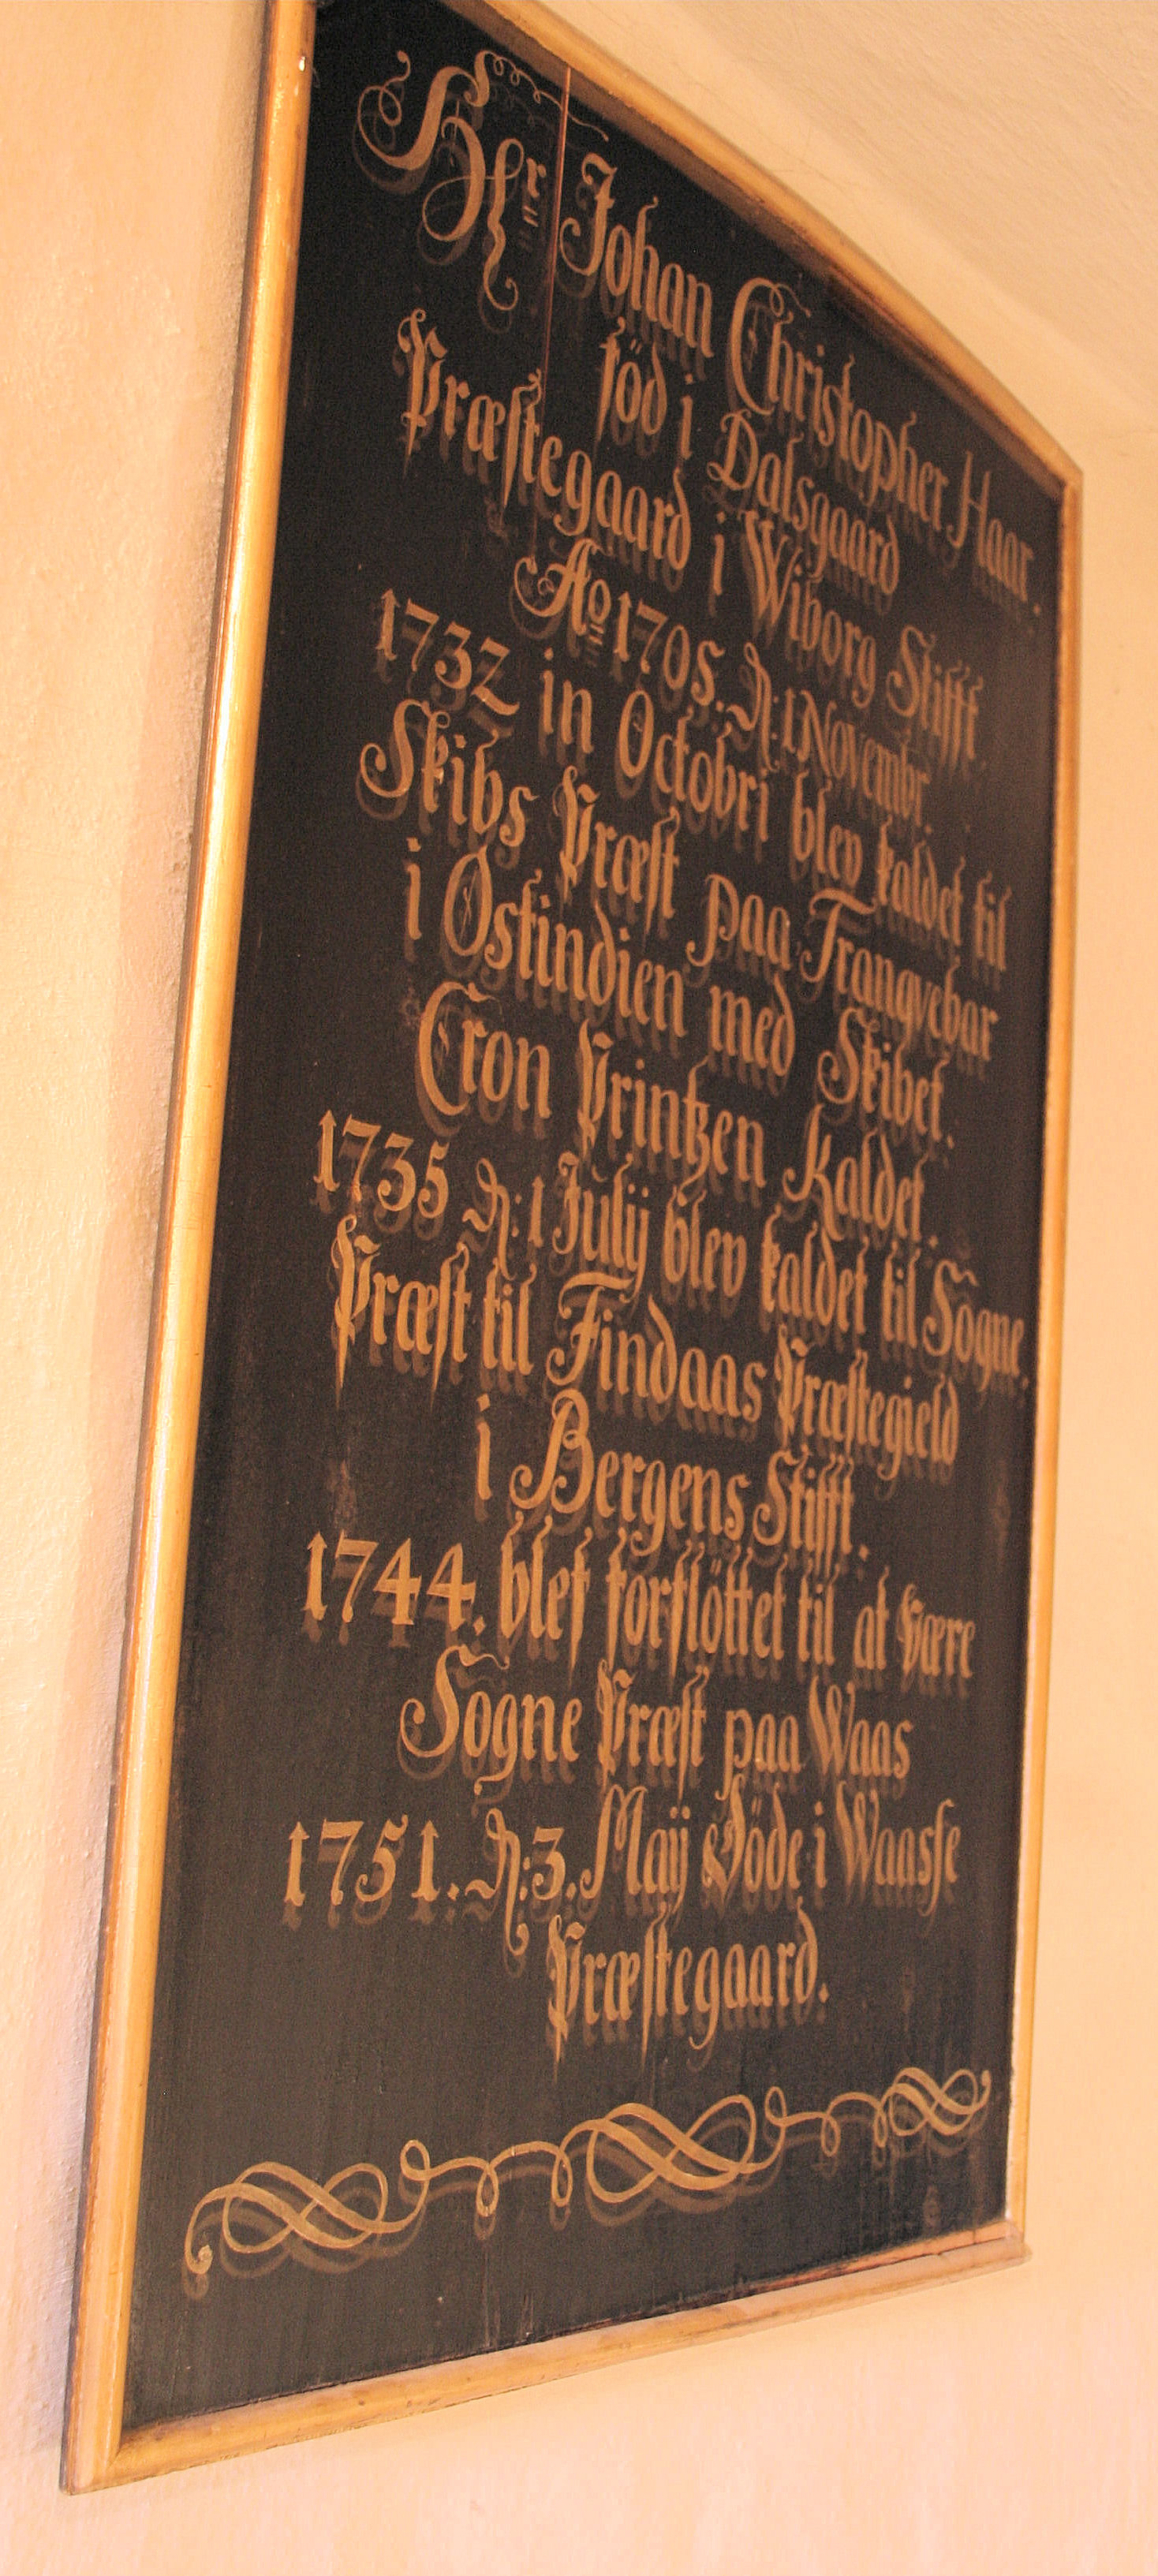 Hr Johan Christopher Haar.
föd i Dalsgaard
Præstegaard i Wiborg Stifft
Ao 1705. D: 1 Novembr.
1732 in Octobri blev kaldet til
Skibs Præst paa Trangvebar
i Ostindien med Skibet.
Cron Printzen Kaldet.
1735 D: 1 Julij blev kaldet til Sogne.
Præst til Findaas Præstegield
i Bergens Stifft.
1744. blef forflöttet til at være
Sogne Præst paa Waas
1751. D: 3. Maij Döde i Waasse
Præstegaard.